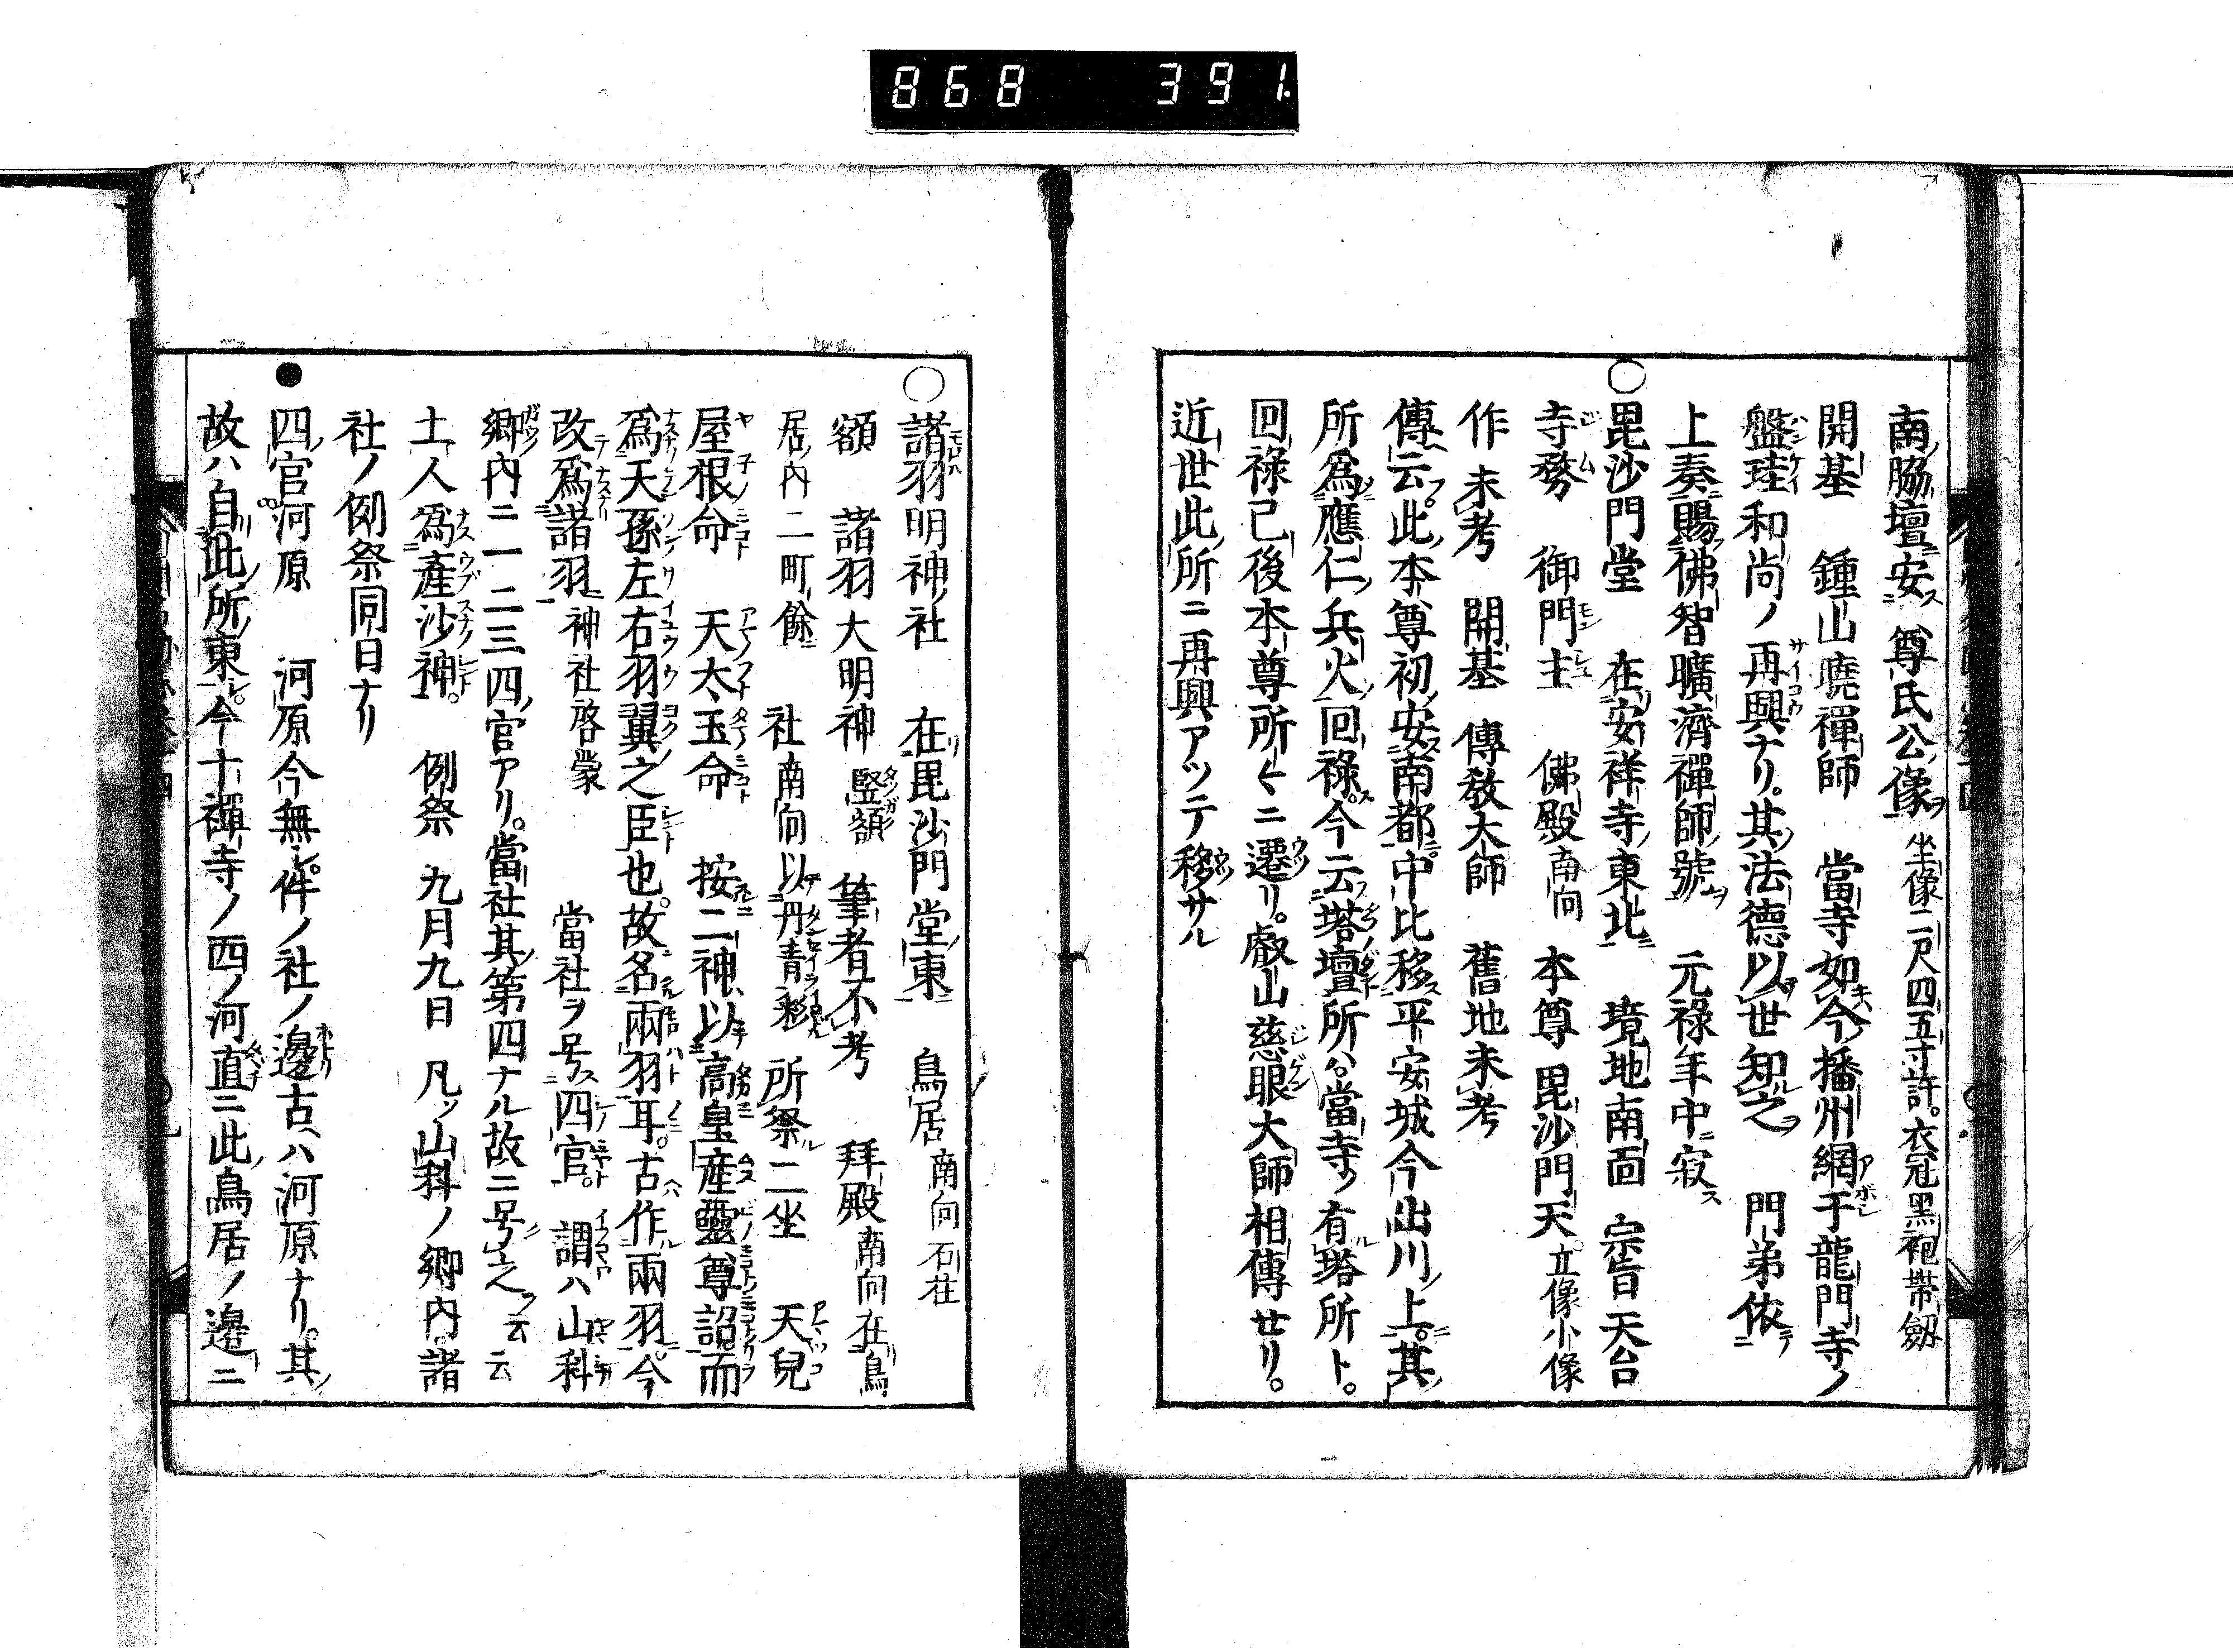 868 391
南脇壇安尊氏公像 坐像二尺四五寸許。衣冠黒袍帶劔
開基 鐘山曉禪師 當寺如今播州網干龍門寺ノ
盤珪和尚ノ再興ナリ。其法德以世知之 門弟依
上奏賜佛智曠濟禪師號 元祿年中寂ス
○毘沙門堂 在安祥寺東北 境地南面 宗旨天台
寺務 御門主 佛殿南向 本尊毘沙門天。立像小像
作未考 開基傳教大師 舊地未考
傳云此本尊初安南都中比移平安城今出川上。其
所爲應仁兵火回祿今云塔壇所ハ當寺有塔所ト。
回祿已後本尊所〱ニ遷リ。叡山慈眼大師相傳セリ。
近世此所ニ再興アツテ移サル
○諸羽明神社 在毘沙門堂東 鳥居南向石柱
額 諸羽大明神 竪額 筆者不考 拜殿南向在鳥
居内二町餘 社南向以丹青彩 所祭二坐 天兒
屋根命 天太玉命 按二神以高皇産靈尊詔而
爲天孫左右羽翼之臣也。故名兩羽耳。古作兩羽今
改爲諸羽 神社啓蒙 當社ヲ号四官。謂ハ山科
郷内ニ一二三四官アリ。當社其第四ナル故ニ号之云云
土人爲産沙神。 例祭 九月九日 凡ソ山科ノ郷内諸
社ノ例祭同日ナリ
●四官河原 河原今無件ノ社ノ邊古ハ河原ナリ。其
故ハ自此所東今十禪寺ノ四ノ河直ニ此鳥居ノ邊ニ